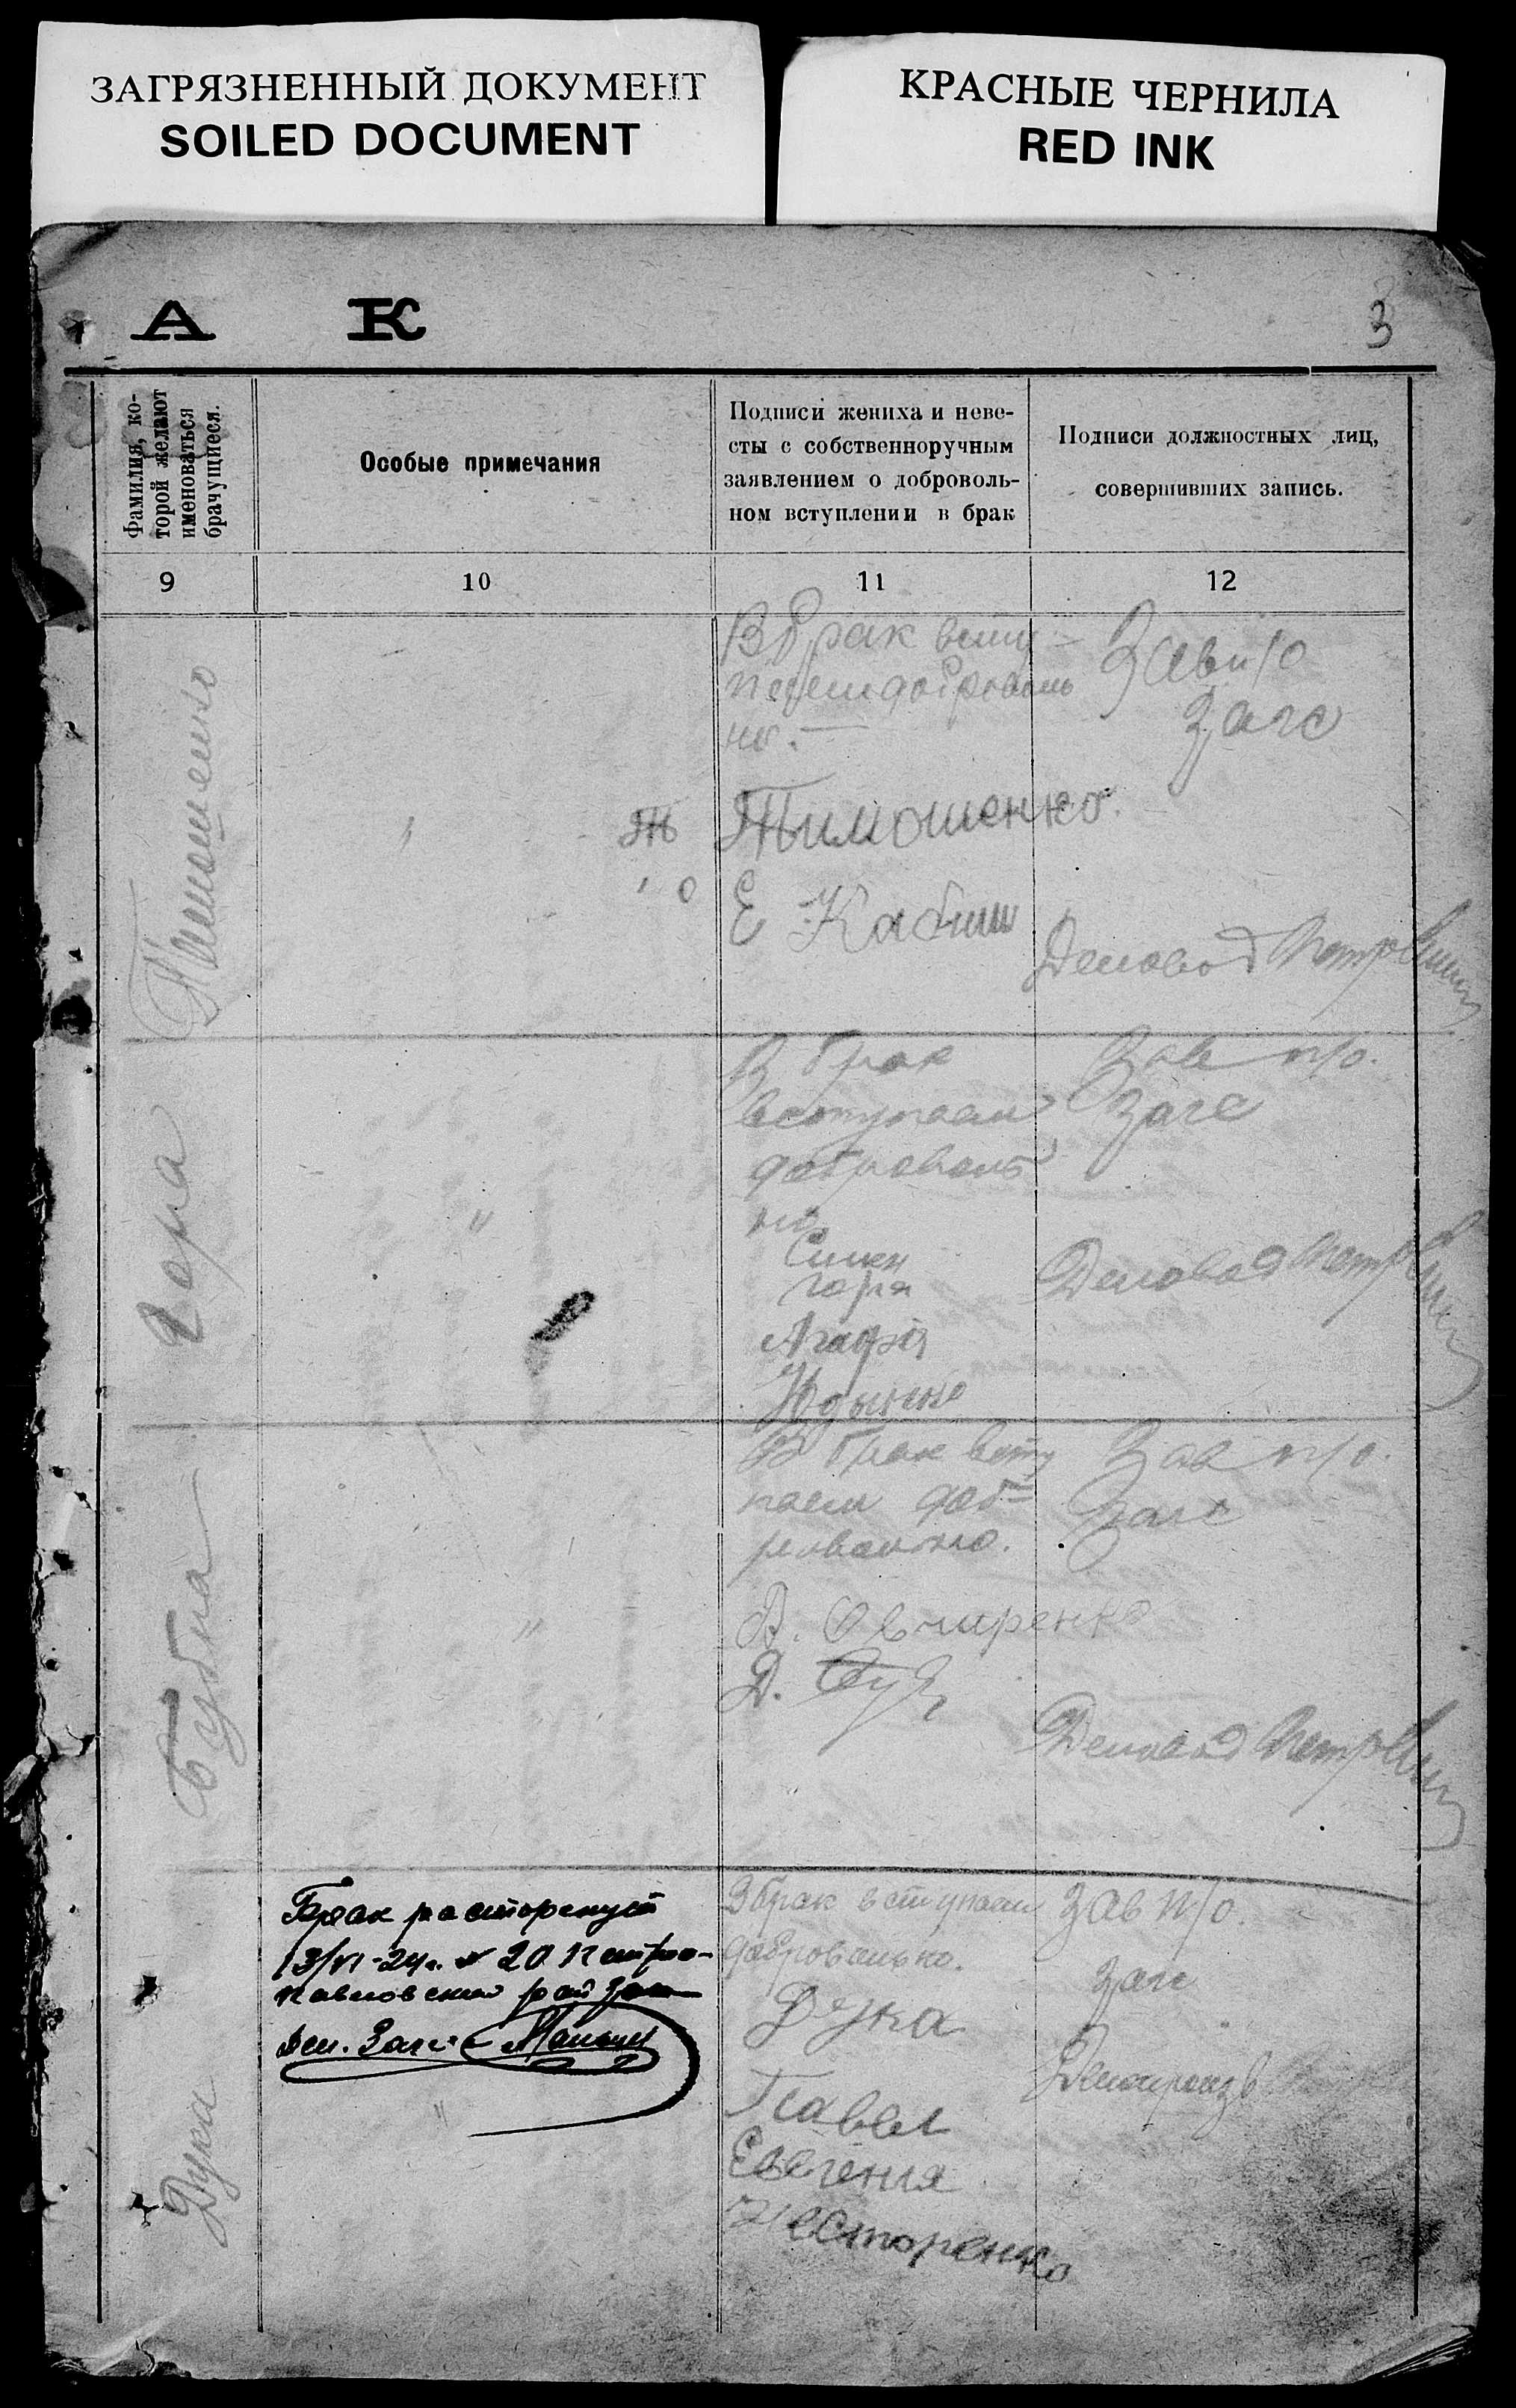 ЗАГРЯЗНЕННЫЙ ДОКУМЕНТ
SOILED DOCUMENT
КРАСНЫЕ ЧЕРНИЛА
RED INK
А К
3
Фамилия, ко-
торой желают
именоваться
брачущиеся.
Особые примечания
Подписи жениха и неве-
сты с собственноручным
заявлением о доброволь-
ном вступлении в брак
Подписи должностных лиц,
совершивших запись.
9 10 11 12
Тимошенко
В брак всту-
паем доброволь
но.
Тимошенко.
Е
Зав п/о
Загс
Деловод
Гора
"
В брак
вступаем
доброволь
но
Симен
гора
Агафія
Зав п/о.
Загс
Деловод
Бубна
"
В брак всту
паем доб-
ровольно.
В. Овчиренко
Д.
Зав п/о.
Загс
Деловод
Дука
Брак расторгнут
13/VI-24г. № 20 Петро-
павловским рай загс
Дел. Загс
"
В брак вступаем
добровольно.
Дука
Павел
Евгения
Несторенко
Зав п/о.
Загс
Делопроизв